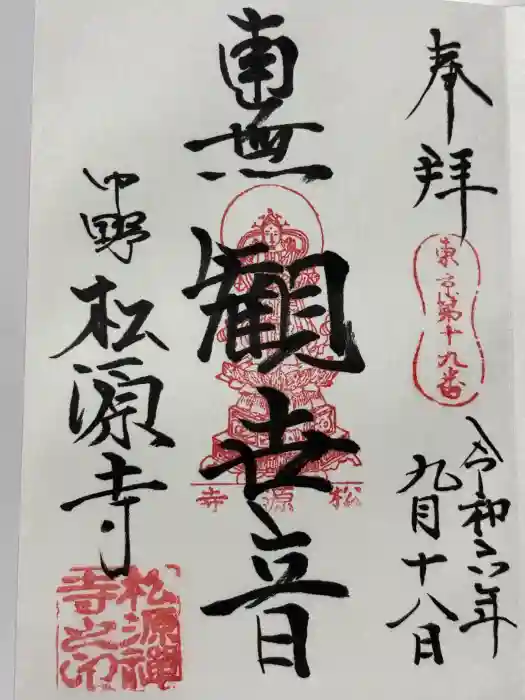 奉拝
東京第十九番
令和六年
九月十八日
南無
觀世音
松源寺
中野
松源寺
松源禅
寺之印